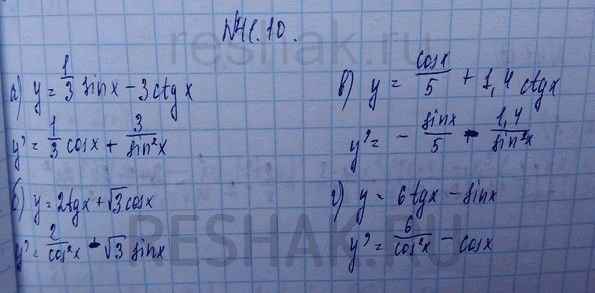 №41.10.
а) y = 1/3 sinx - 3ctgx
y' = 1/3 cosx + 3/sin²x
б) y = 2tgx + √3cosx
y' = 2/cos²x - √3 sinx
в) y = cosx/5 + 1,4 ctgx
y' = - sinx/5 - 1,4/sin²x
г) y = 6tgx - sinx
y' = 6/cos²x - cosx
reshak.ru
RESHAK.RU